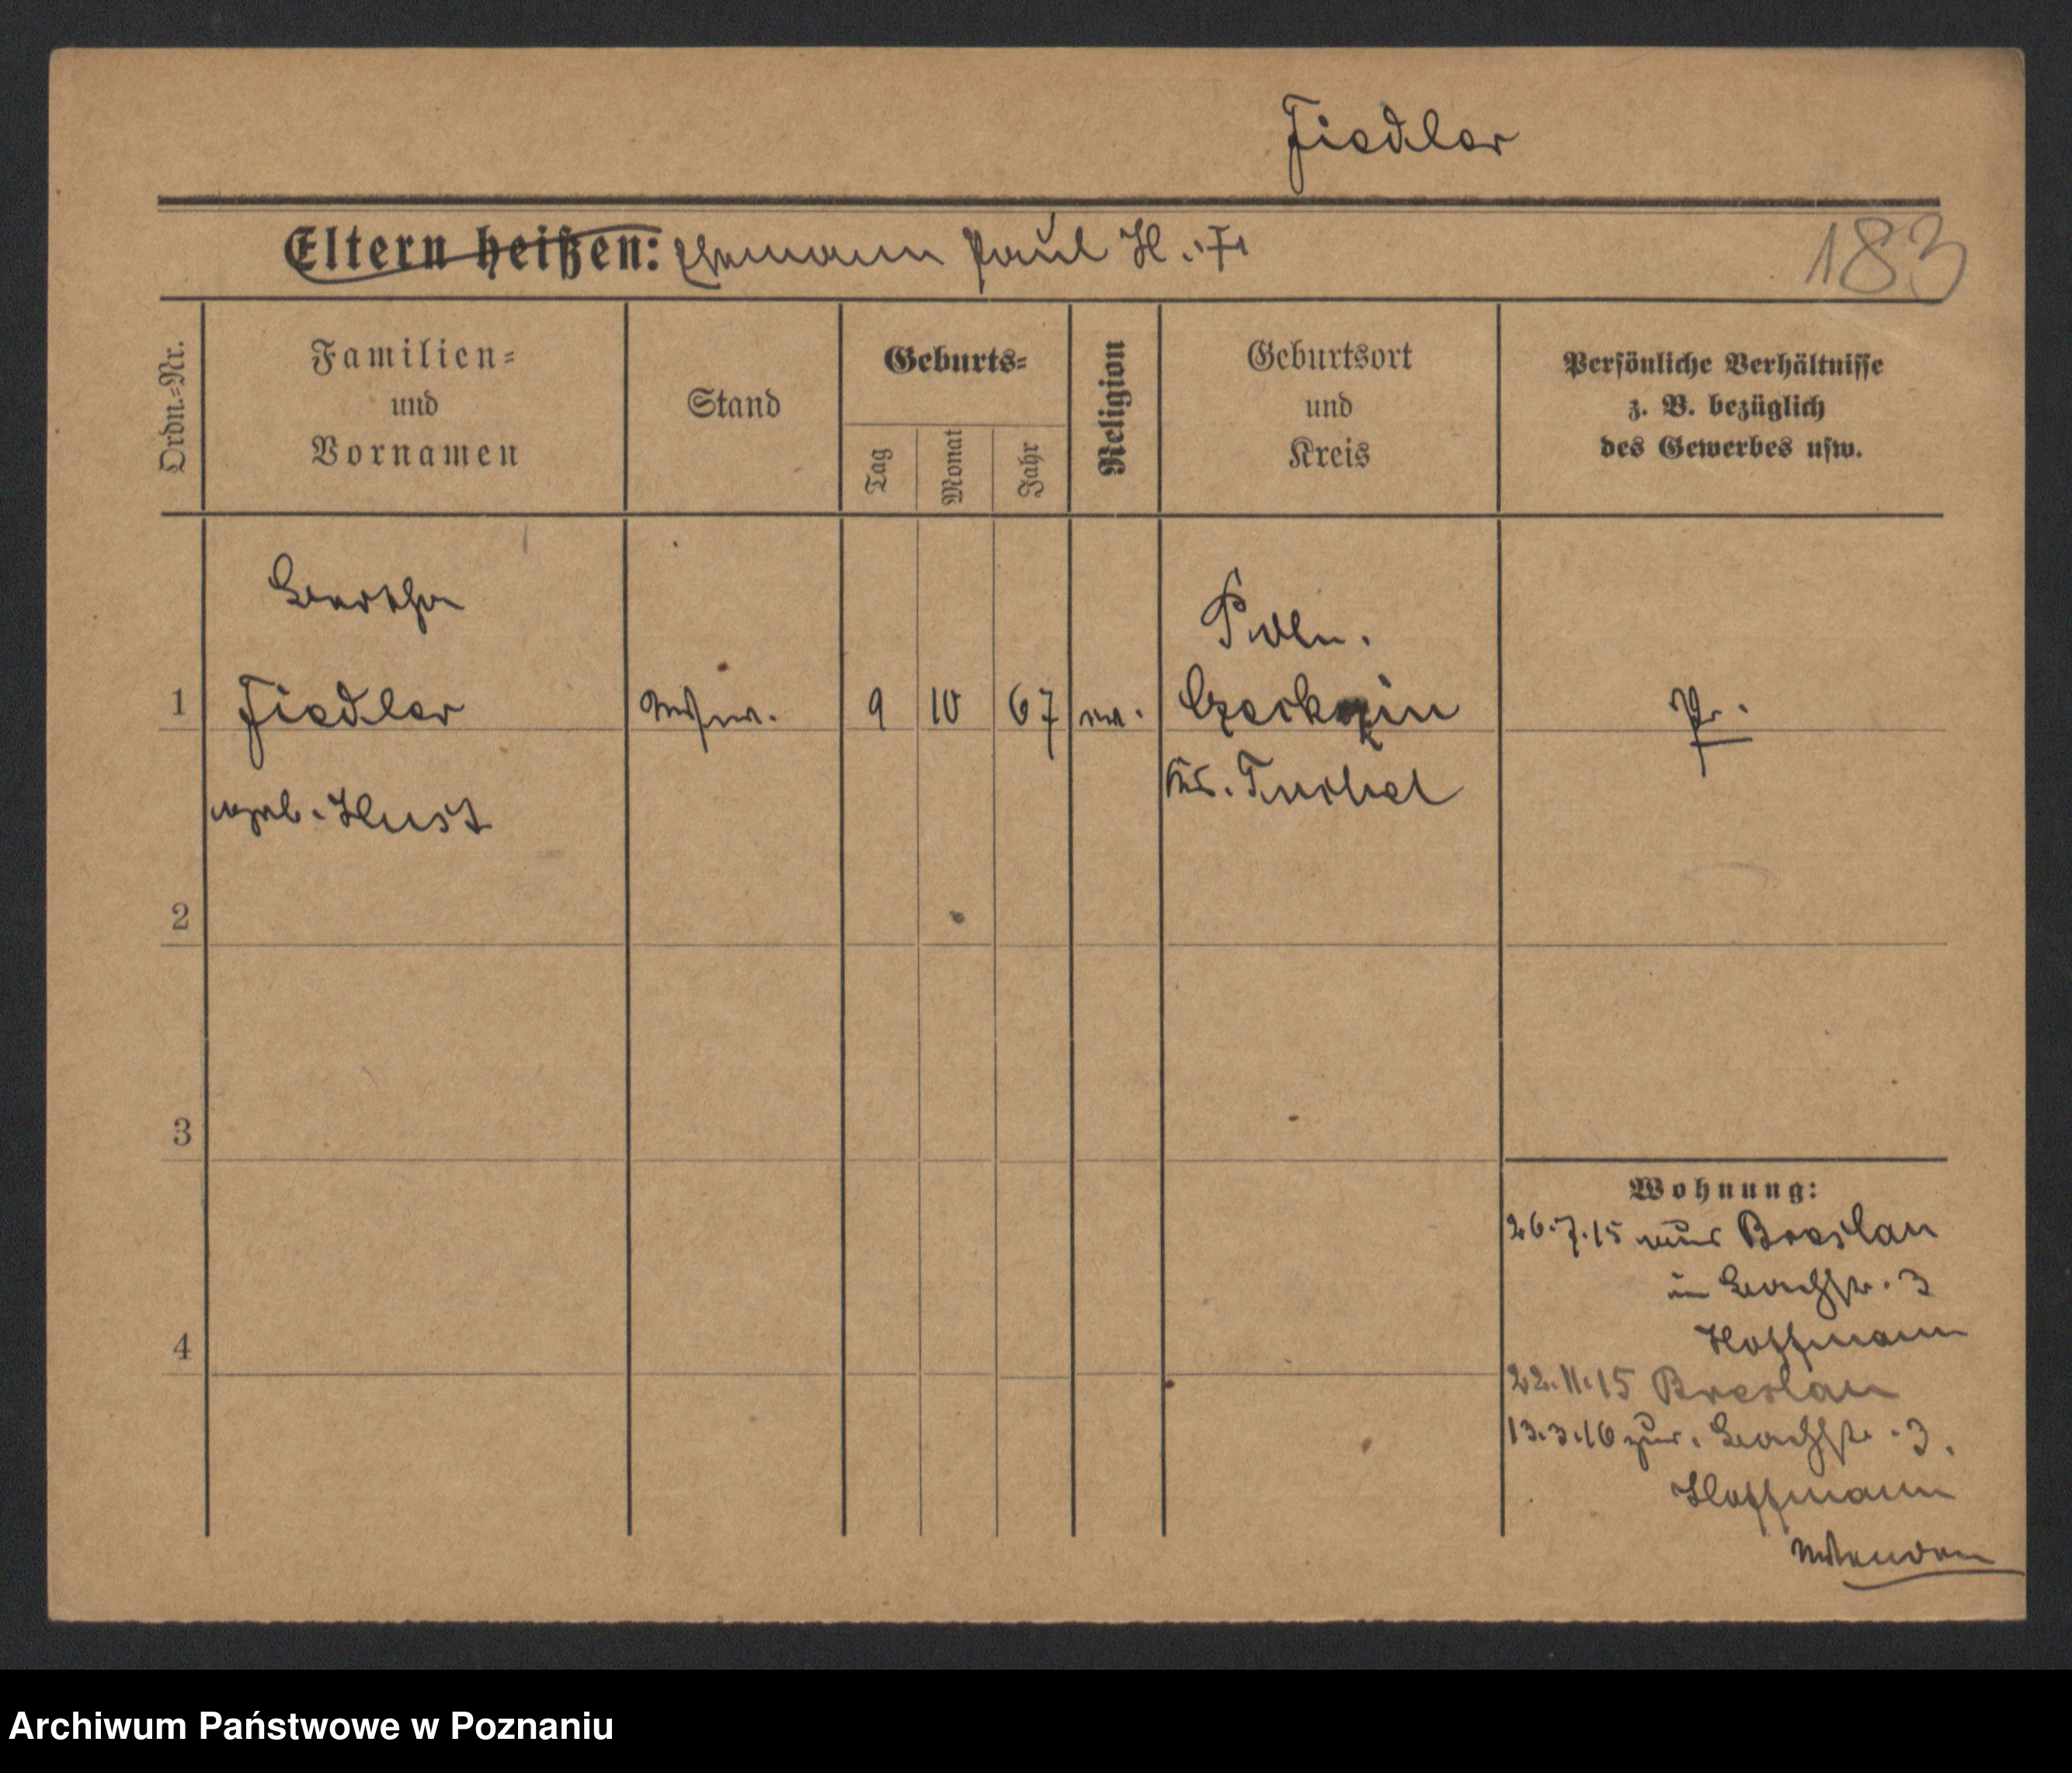 Fiedler
Eltern heißen: Ehemann Paul H. F.
183
Ordn.=Nr.
Familien=
und
Vornamen
Stand
Geburts=
Tag
Monat
Jahr
Religion
Geburtsort
und
Kreis
Persönliche Verhältnisse
z. B. bezüglich
des Gewerbes usw.
Bertha
Poln.
1 Fiedler 9 10 67 ev. Czekzin Pr.
geb. Hust
Krs. Tuchel
2
3
4
Wohnung:
26.7.15 Breslau
in Bachstr. 3
Hoffmann
22.11.15 Breslau
13.3.16 zur. Bachstr. 3.
Hoffmann
Archiwum Państwowe w Poznaniu